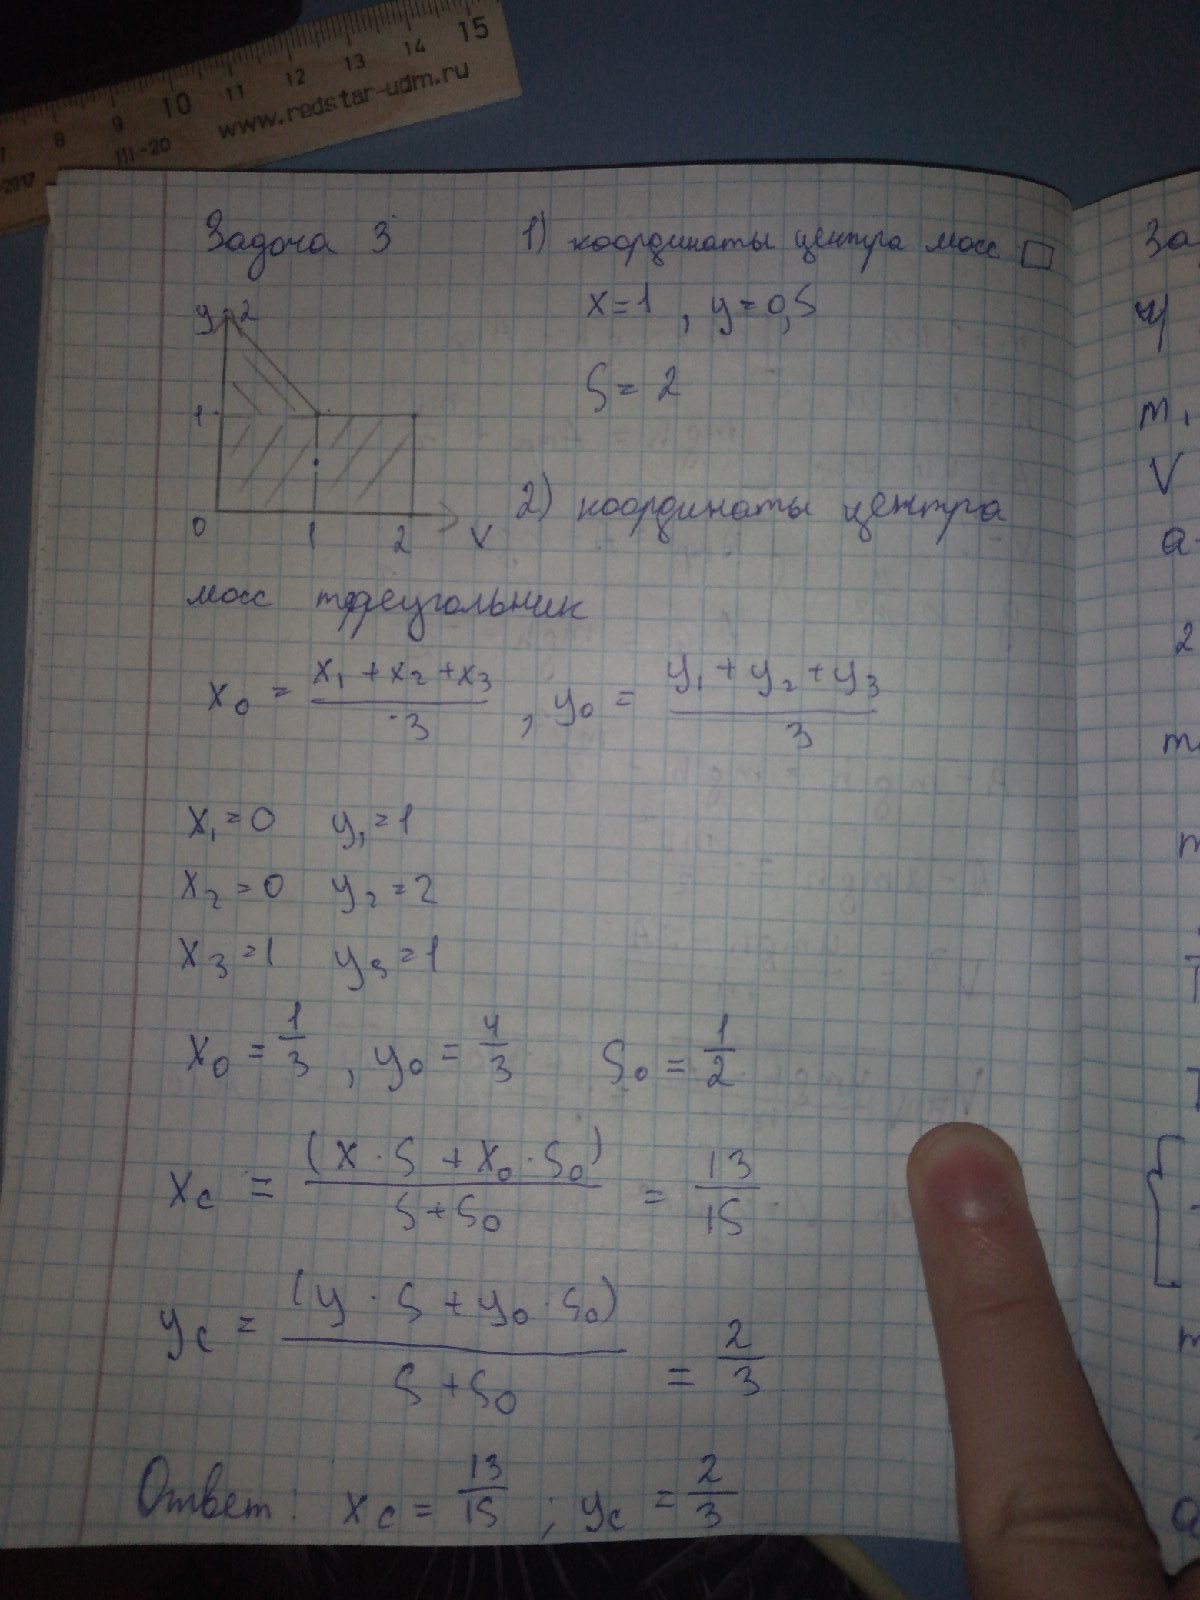 15
14
13
12
11
10
9
8
7
www.redstar-udm.ru
III-20
-2017
Задача 3 1) координаты центра масс □
x=1 , y=0,5
S= 2
y 2
1
0 1 2 x
2) координаты центра
масс треугольник
x₀ = (x₁ + x₂ + x₃)/3 , y₀ = (y₁ + y₂ + y₃)/3
x₁=0 y₁=1
x₂=0 y₂=2
x₃=1 y₃=1
x₀ = 1/3 , y₀ = 4/3 S₀ = 1/2
x_c = (x · S + x₀ · S₀)/(S+S₀) = 13/15
y_c = (y · S + y₀ · S₀)/(S+S₀) = 2/3
Ответ: x_c = 13/15 ; y_c = 2/3
За
m₁
V
a
2
m